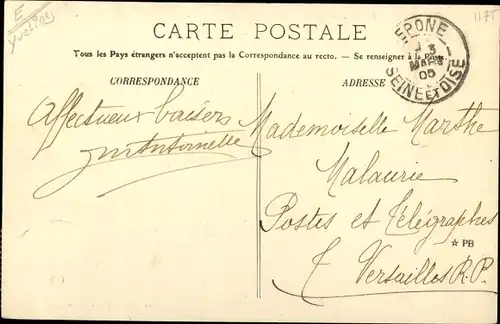 E
Yvelines
CARTE POSTALE
Tous les Pays étrangers n'acceptent pas la Correspondance au recto. — Se renseigner à la Poste.
CORRESPONDANCE
ADRESSE
EPONE
3
MARS
05
SEINE ET OISE
Affectueux baisers
Antoinette
Mademoiselle Marthe
Malaurie
Postes et Télégraphes
Versailles R.P.
★ PB